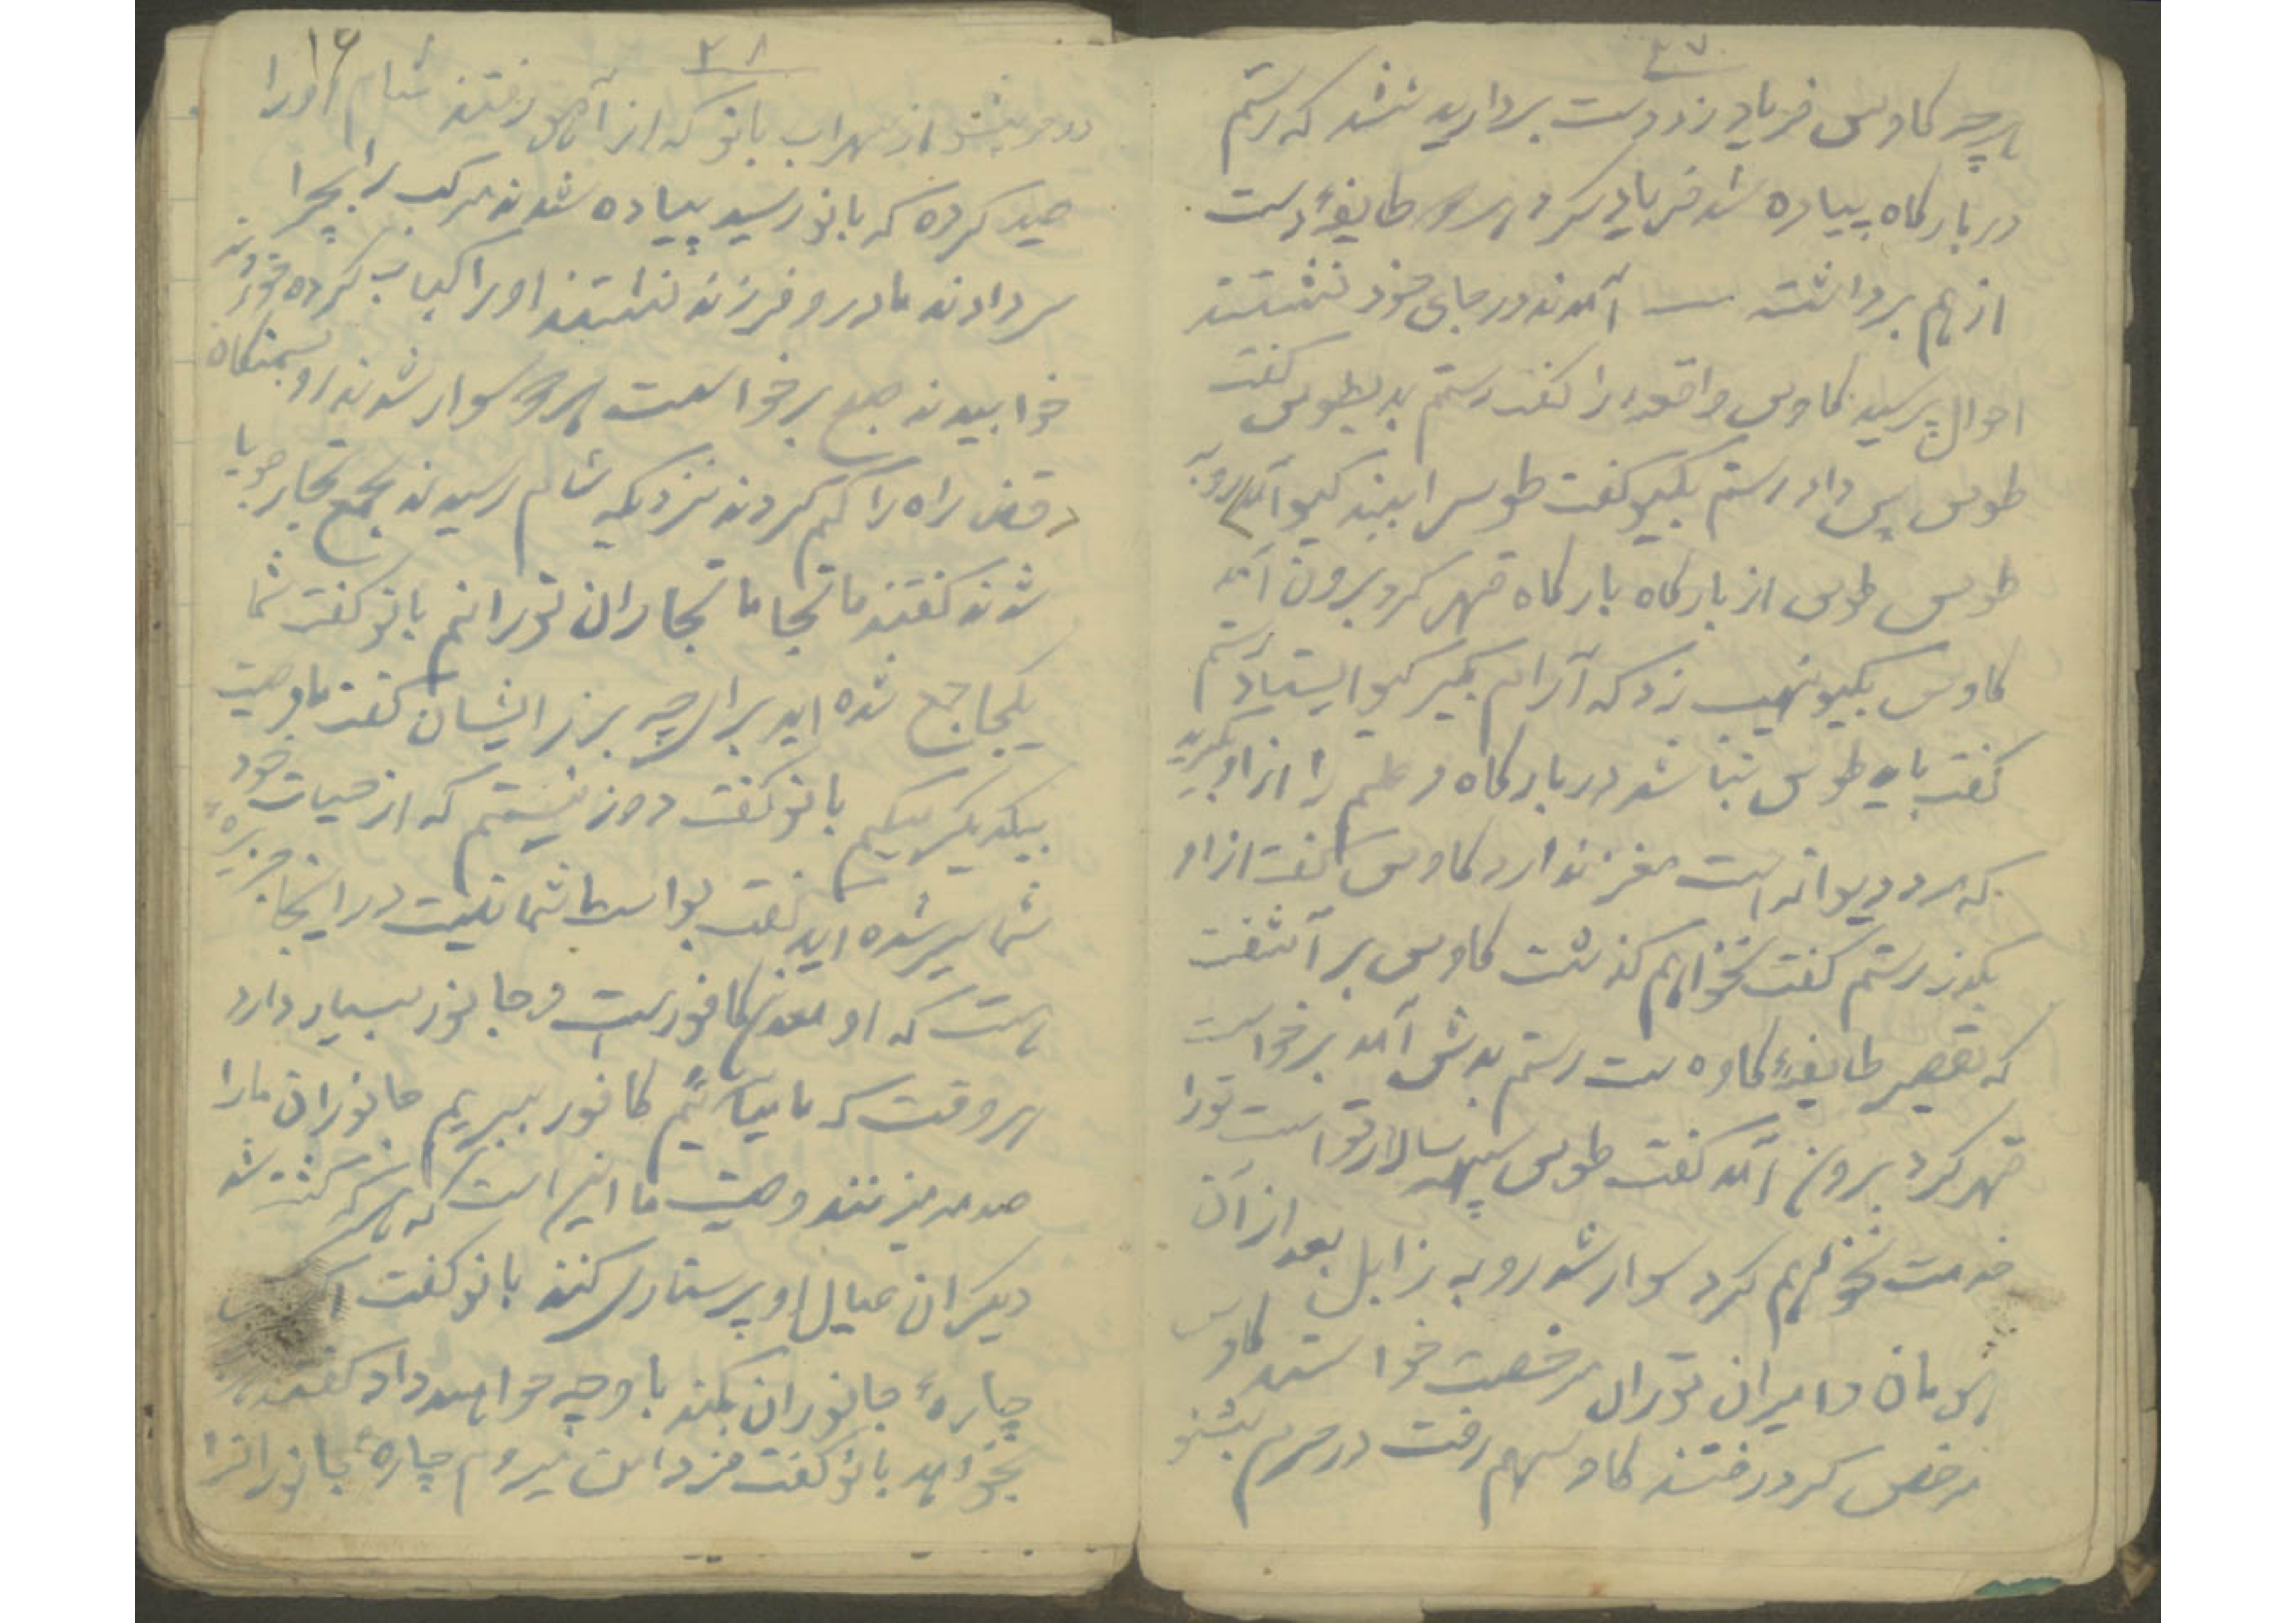 ۲۷
هرچه کاوس فریاد زد دست بردارید نشد که رستم
در بارگاه پیاده شد فریاد کرد هر دو طایفهٔ دست
از هم برداشته آمدند در جای خود نشستند
احوال پرسید کاوس واقعه را گفت رستم بد بطوس گفت
طوس پس داد رستم بگیو گفت طوس را ببند گیو آمد رو به
طوس طوس از بارگاه بارگاه قهر کرد برون آمد
کاوس بگیو نهیب زد که آرام بگیر گیو ایستاد رستم
گفت باید طوس نباشد در بارگاه و علم را از او بگیرید
که مرد دیوانه است مغز ندارد کاوس گفت از او
بگذر رستم گفت نخواهم گذشت کاوس بر آشفت
که تقصیر طایفهٔ کاوه ست رستم بدش آمد برخواست
قهر کرد برون آمد گفت طوس سپهسالار تو است تو را
خدمت نخواهم کرد سوار شد رو به زابل بعد از آن
هومان و امیران توران مرخصت خواستند کاوس
مرخص کرد رفتند کاوس هم رفت در حرم بشنو
۲۸
۱۶
دو حر بشنو از سهراب بانو که از آمل رفتند شام او را
صید کرده که بانو رسید پیاده شدند مرکب را بچرا
سر دادند مادر و فرزند نشستند او را کباب کرده خوردند
خوابیدند صبح برخواست هر دو سوار شدند رو بسمنگان
قضا راه را گم کردند نزدیک شام رسیدند بجمع تجار جویا
شدند گفتند ما تجا ما تجاران تورانیم بانو گفت شما
یکجا جمع شده اید برای چه برزایشان گفت ما وصیت
بیکدیگر میکنیم بانو گفت دوزد نیستم که از حیات خود
شما سیر شده اید گفت بواسطه شما نیست در اینجا جزیرهٔ
هست که او معدن کافورست و جانور بسیار دارد
هر وقت که ما بیائیم کافور ببریم جانوران ما را
صدمه میزنند وصیت ما این است که هر که کشته شد
دیگران عیال او پرستاری کنند بانو گفت
چارهٔ جانوران بکند با و چه خواهید داد گفتند
بخواهد بانو گفت فردا من میروم چارهٔ جانوران را